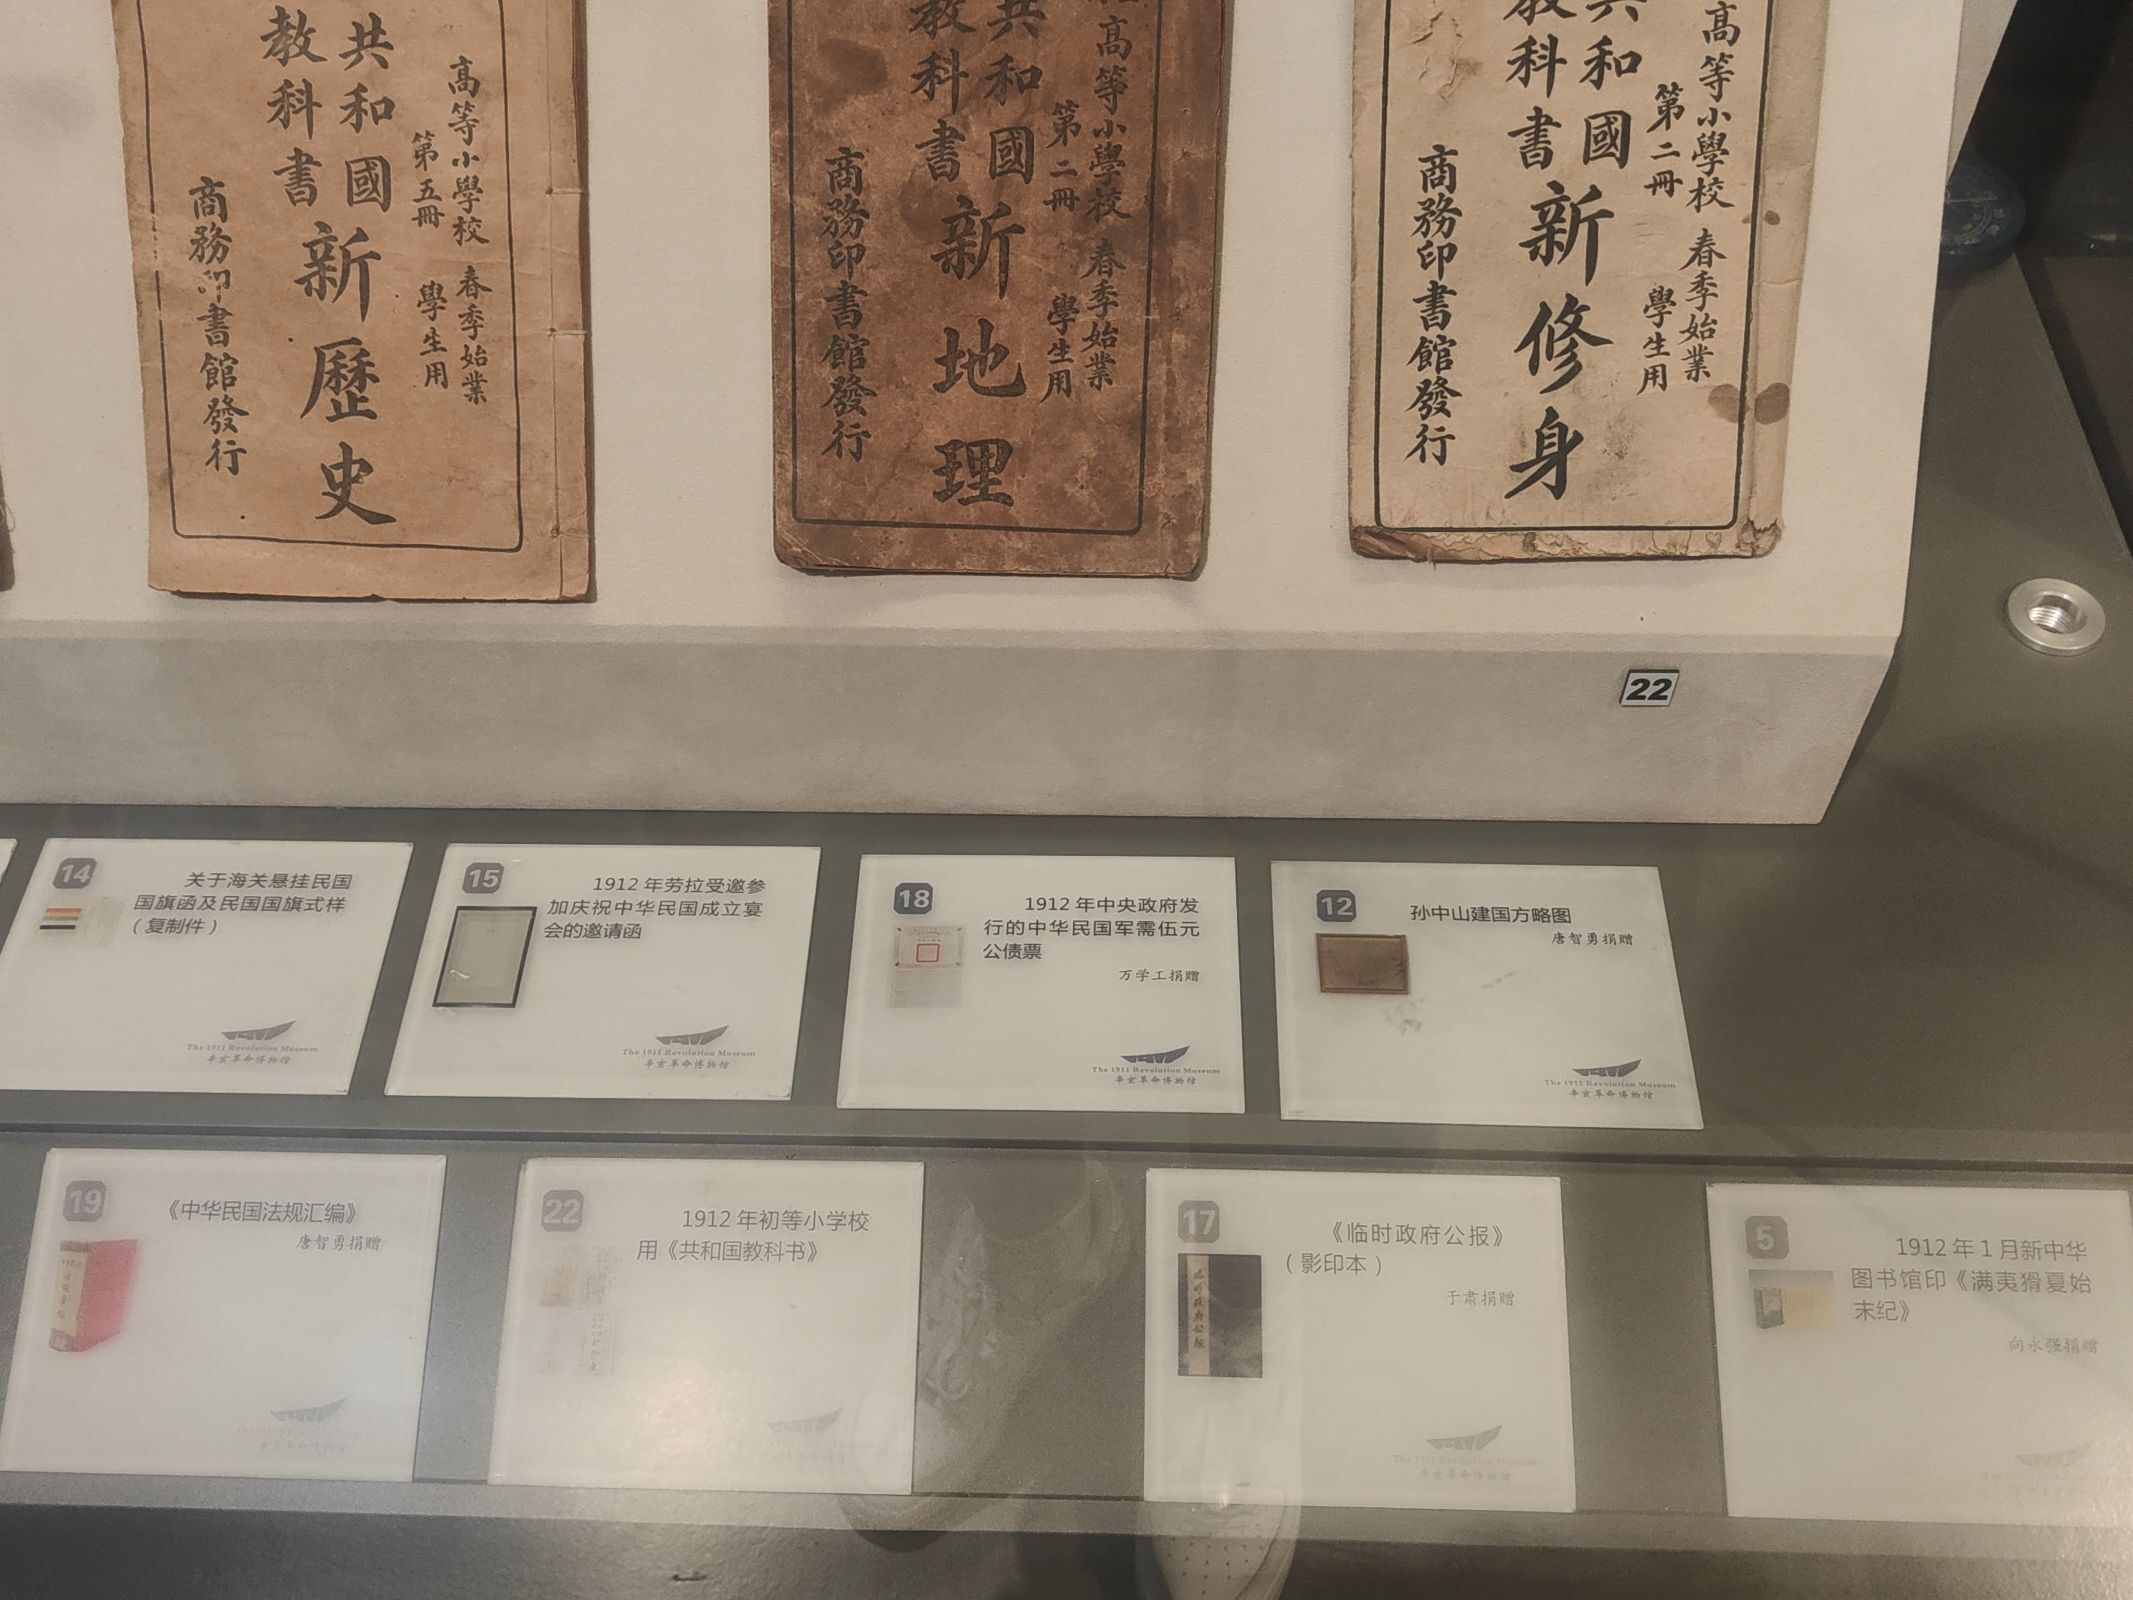 高等小學校 春季始業
第五冊 學生用
共和國
教科書
新歷史
商務印書館發行
高等小學校 春季始業
第二冊 學生用
共和國
教科書
新地理
商務印書館發行
高等小學校 春季始業
第二冊 學生用
共和國
教科書
新修身
商務印書館發行
22
14
关于海关悬挂民国
国旗函及民国国旗式样
（复制件）
The 1911 Revolution Museum
辛亥革命博物馆
15
1912 年劳拉受邀参
加庆祝中华民国成立宴
会的邀请函
The 1911 Revolution Museum
辛亥革命博物馆
18
1912 年中央政府发
行的中华民国军需伍元
公债票
万学工捐赠
The 1911 Revolution Museum
辛亥革命博物馆
12
孙中山建国方略图
唐智勇捐赠
The 1911 Revolution Museum
辛亥革命博物馆
19
《中华民国法规汇编》
唐智勇捐赠
The 1911 Revolution Museum
辛亥革命博物馆
22
1912 年初等小学校
用《共和国教科书》
The 1911 Revolution Museum
17
《临时政府公报》
（影印本）
于肃捐赠
临时政府公报
The 1911 Revolution Museum
辛亥革命博物馆
5
1912 年 1 月新中华
图书馆印《满夷猾夏始
末纪》
向永强捐赠